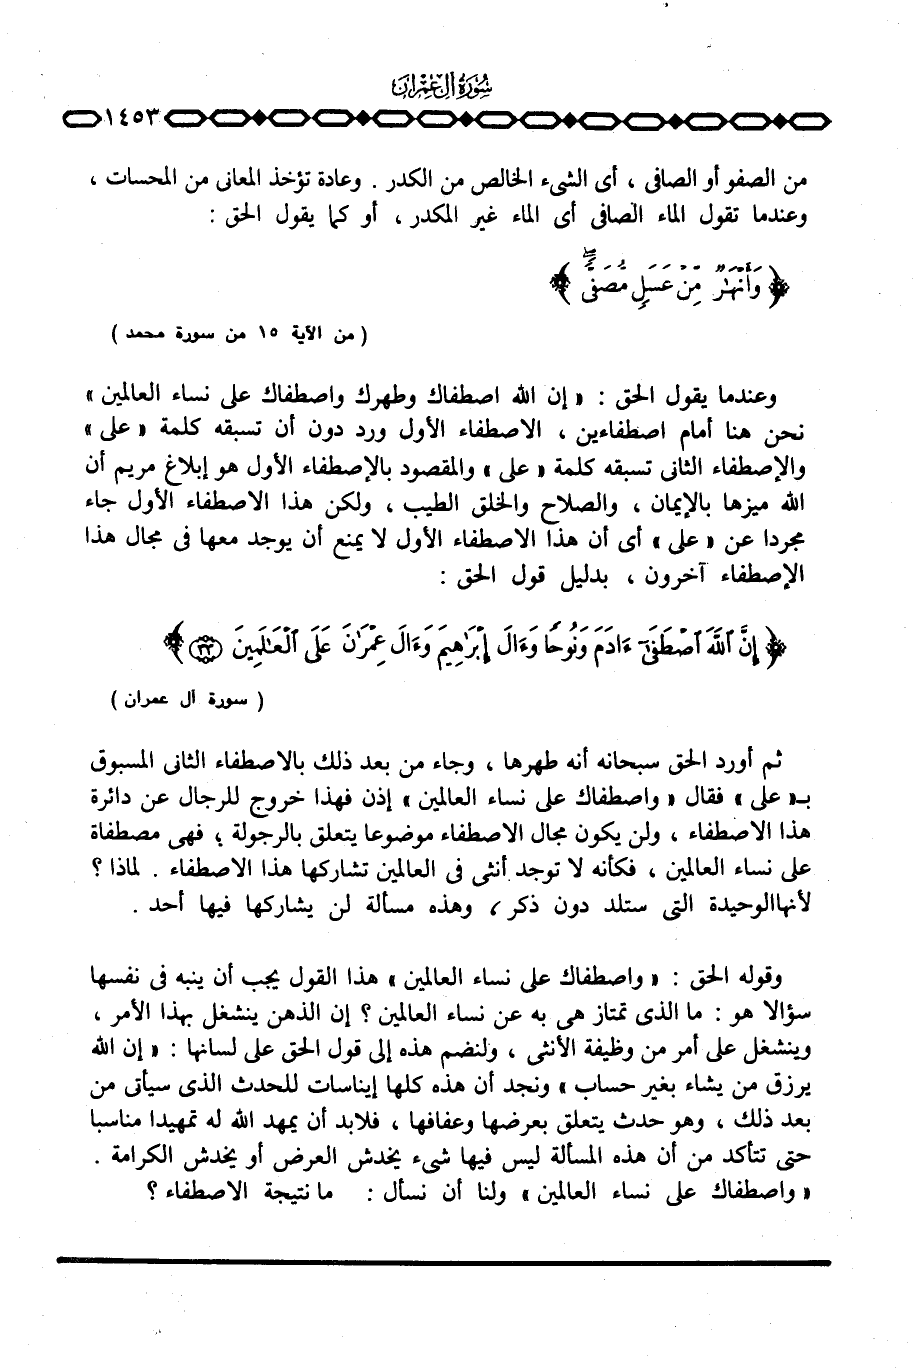 سورة آل عمران
١٤٥٣
من الصفو أو الصافى ، أى الشىء الخالص من الكدر . وعادة تؤخذ المعانى من المحسات ،
وعندما تقول الماء الصافى أى الماء غير المكدر ، أو كما يقول الحق :
﴿ وَأَنْهَٰرٌ مِّنْ عَسَلٍ مُّصَفًّى ﴾
( من الآية ١٥ من سورة محمد )
وعندما يقول الحق : « إن الله اصطفاك وطهرك واصطفاك على نساء العالمين »
نحن هنا أمام اصطفاءين ، الاصطفاء الأول ورد دون أن تسبقه كلمة « على »
والإصطفاء الثانى تسبقه كلمة « على » والمقصود بالإصطفاء الأول هو إبلاغ مريم أن
الله ميزها بالإيمان ، والصلاح والخلق الطيب ، ولكن هذا الاصطفاء الأول جاء
مجردا عن « على » أى أن هذا الاصطفاء الأول لا يمنع أن يوجد معها فى مجال هذا
الإصطفاء آخرون ، بدليل قول الحق :
﴿ إِنَّ ٱللَّهَ ٱصْطَفَىٰٓ ءَادَمَ وَنُوحًا وَءَالَ إِبْرَٰهِيمَ وَءَالَ عِمْرَٰنَ عَلَى ٱلْعَٰلَمِينَ ٣٣ ﴾
( سورة آل عمران )
ثم أورد الحق سبحانه أنه طهرها ، وجاء من بعد ذلك بالاصطفاء الثانى المسبوق
بـ« على » فقال « واصطفاك على نساء العالمين » إذن فهذا خروج للرجال عن دائرة
هذا الاصطفاء ، ولن يكون مجال الاصطفاء موضوعا يتعلق بالرجولة ؛ فهى مصطفاة
على نساء العالمين ، فكأنه لا توجد أنثى فى العالمين تشاركها هذا الاصطفاء . لماذا ؟
لأنهاالوحيدة التى ستلد دون ذكر ، وهذه مسألة لن يشاركها فيها أحد .
وقوله الحق : « واصطفاك على نساء العالمين » هذا القول يجب أن ينبه فى نفسها
سؤالا هو : ما الذى تمتاز هى به عن نساء العالمين ؟ إن الذهن ينشغل بهذا الأمر ،
وينشغل على أمر من وظيفة الأنثى ، ولنضم هذه إلى قول الحق على لسانها : « إن الله
يرزق من يشاء بغير حساب » ونجد أن هذه كلها إيناسات للحدث الذى سيأتى من
بعد ذلك ، وهو حدث يتعلق بعرضها وعفافها ، فلابد أن يمهد الله له تمهيدا مناسبا
حتى تتأكد من أن هذه المسألة ليس فيها شىء يخدش العرض أو يخدش الكرامة .
« واصطفاك على نساء العالمين » ولنا أن نسأل : ما نتيجة الاصطفاء ؟